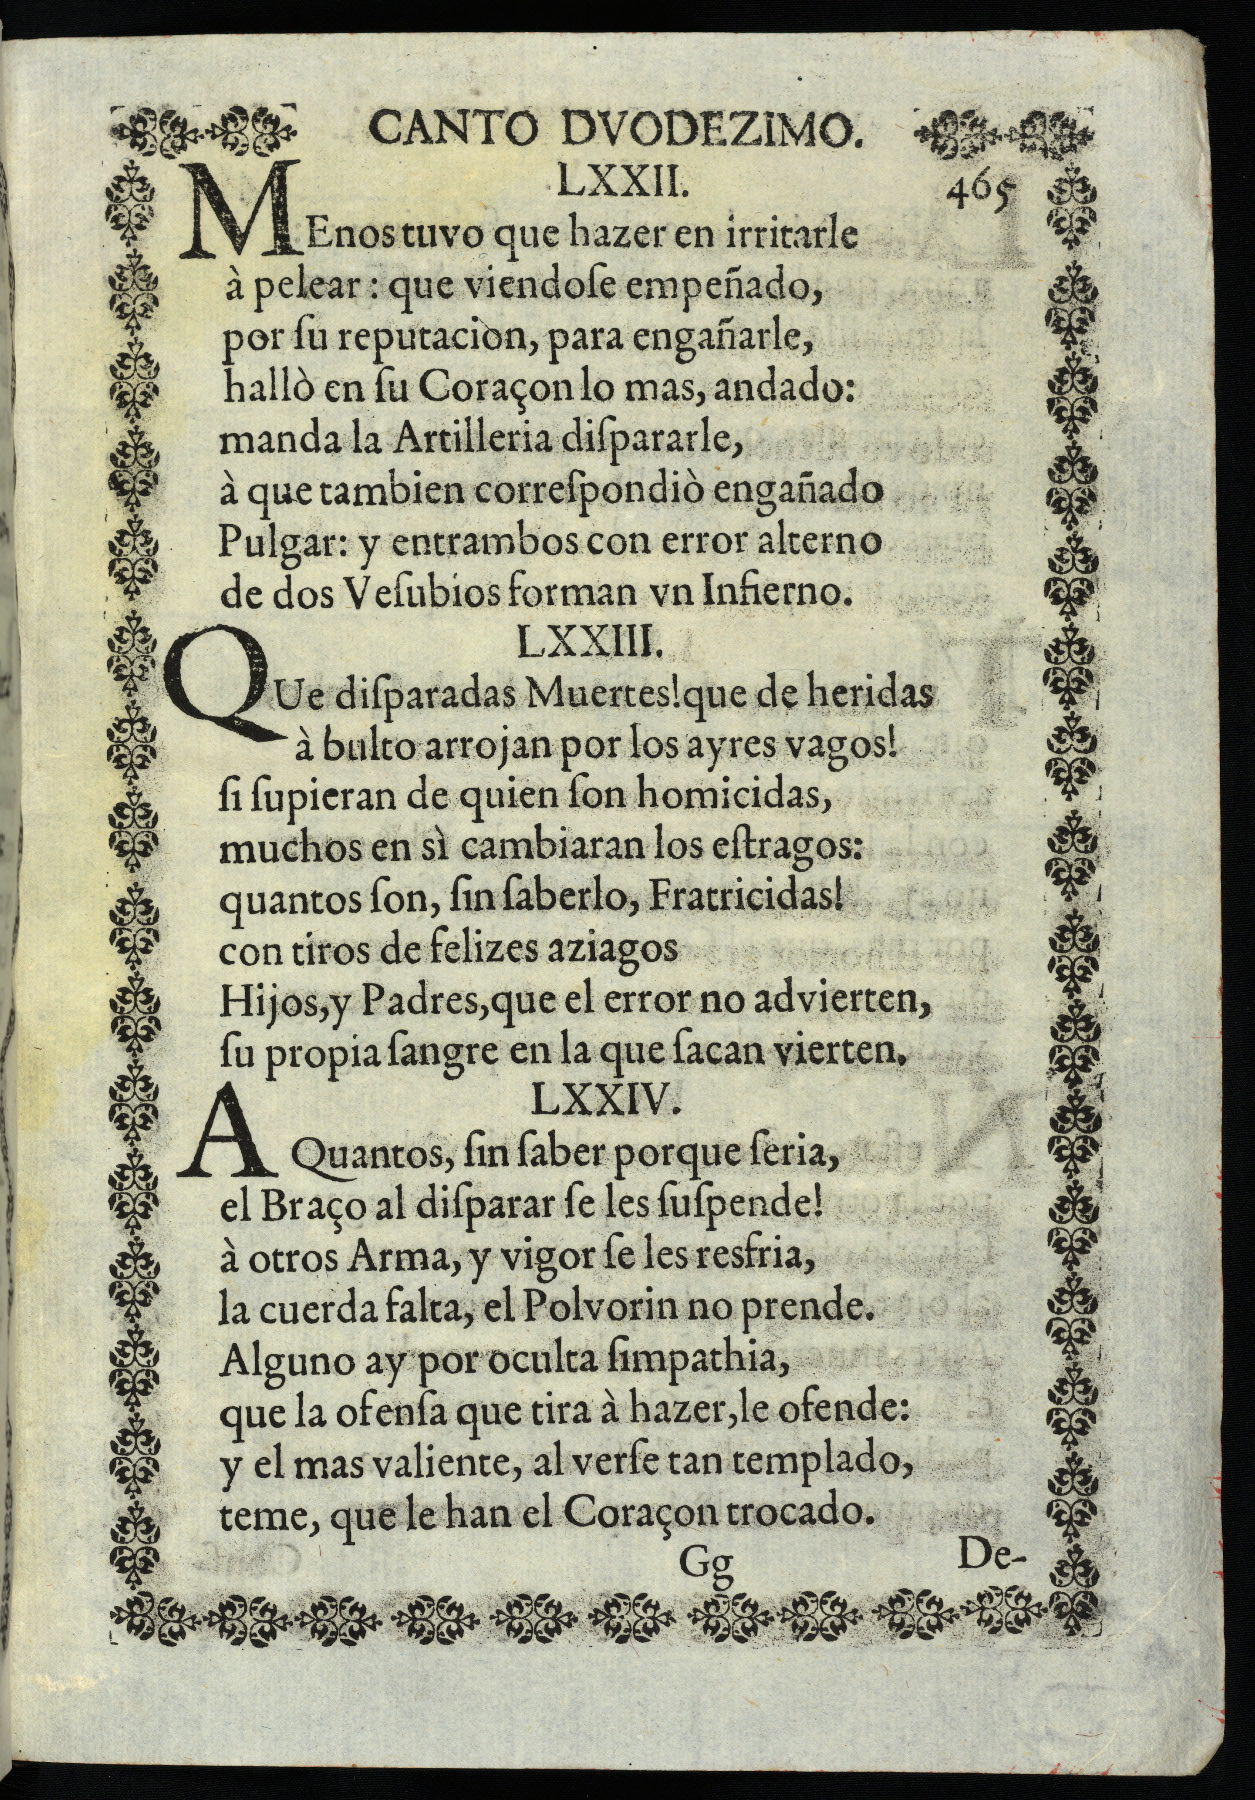 CANTO DVODEZIMO.
LXXII. 465
MEnos tuvo que hazer en irritarle
à pelear : que viendoſe empeñado,
por ſu reputaciòn, para engañarle,
hallò en ſu Coraçon lo mas, andado:
manda la Artilleria diſpararle,
à que tambien correſpondiò engañado
Pulgar: y entrambos con error alterno
de dos Veſubios forman vn Infierno.
LXXIII.
QUe diſparadas Muertes!que de heridas
à bulto arrojan por los ayres vagos!
ſi ſupieran de quien ſon homicidas,
muchos en sì cambiaran los eſtragos:
quantos ſon, ſin ſaberlo, Fratricidas!
con tiros de felizes aziagos
Hijos,y Padres,que el error no advierten,
ſu propia ſangre en la que ſacan vierten.
LXXIV.
A Quantos, ſin ſaber porque ſeria,
el Braço al diſparar ſe les ſuſpende!
à otros Arma, y vigor ſe les resfria,
la cuerda falta, el Polvorin no prende.
Alguno ay por oculta ſimpathia,
que la ofenſa que tira à hazer,le ofende:
y el mas valiente, al verſe tan templado,
teme, que le han el Coraçon trocado.
Gg De-